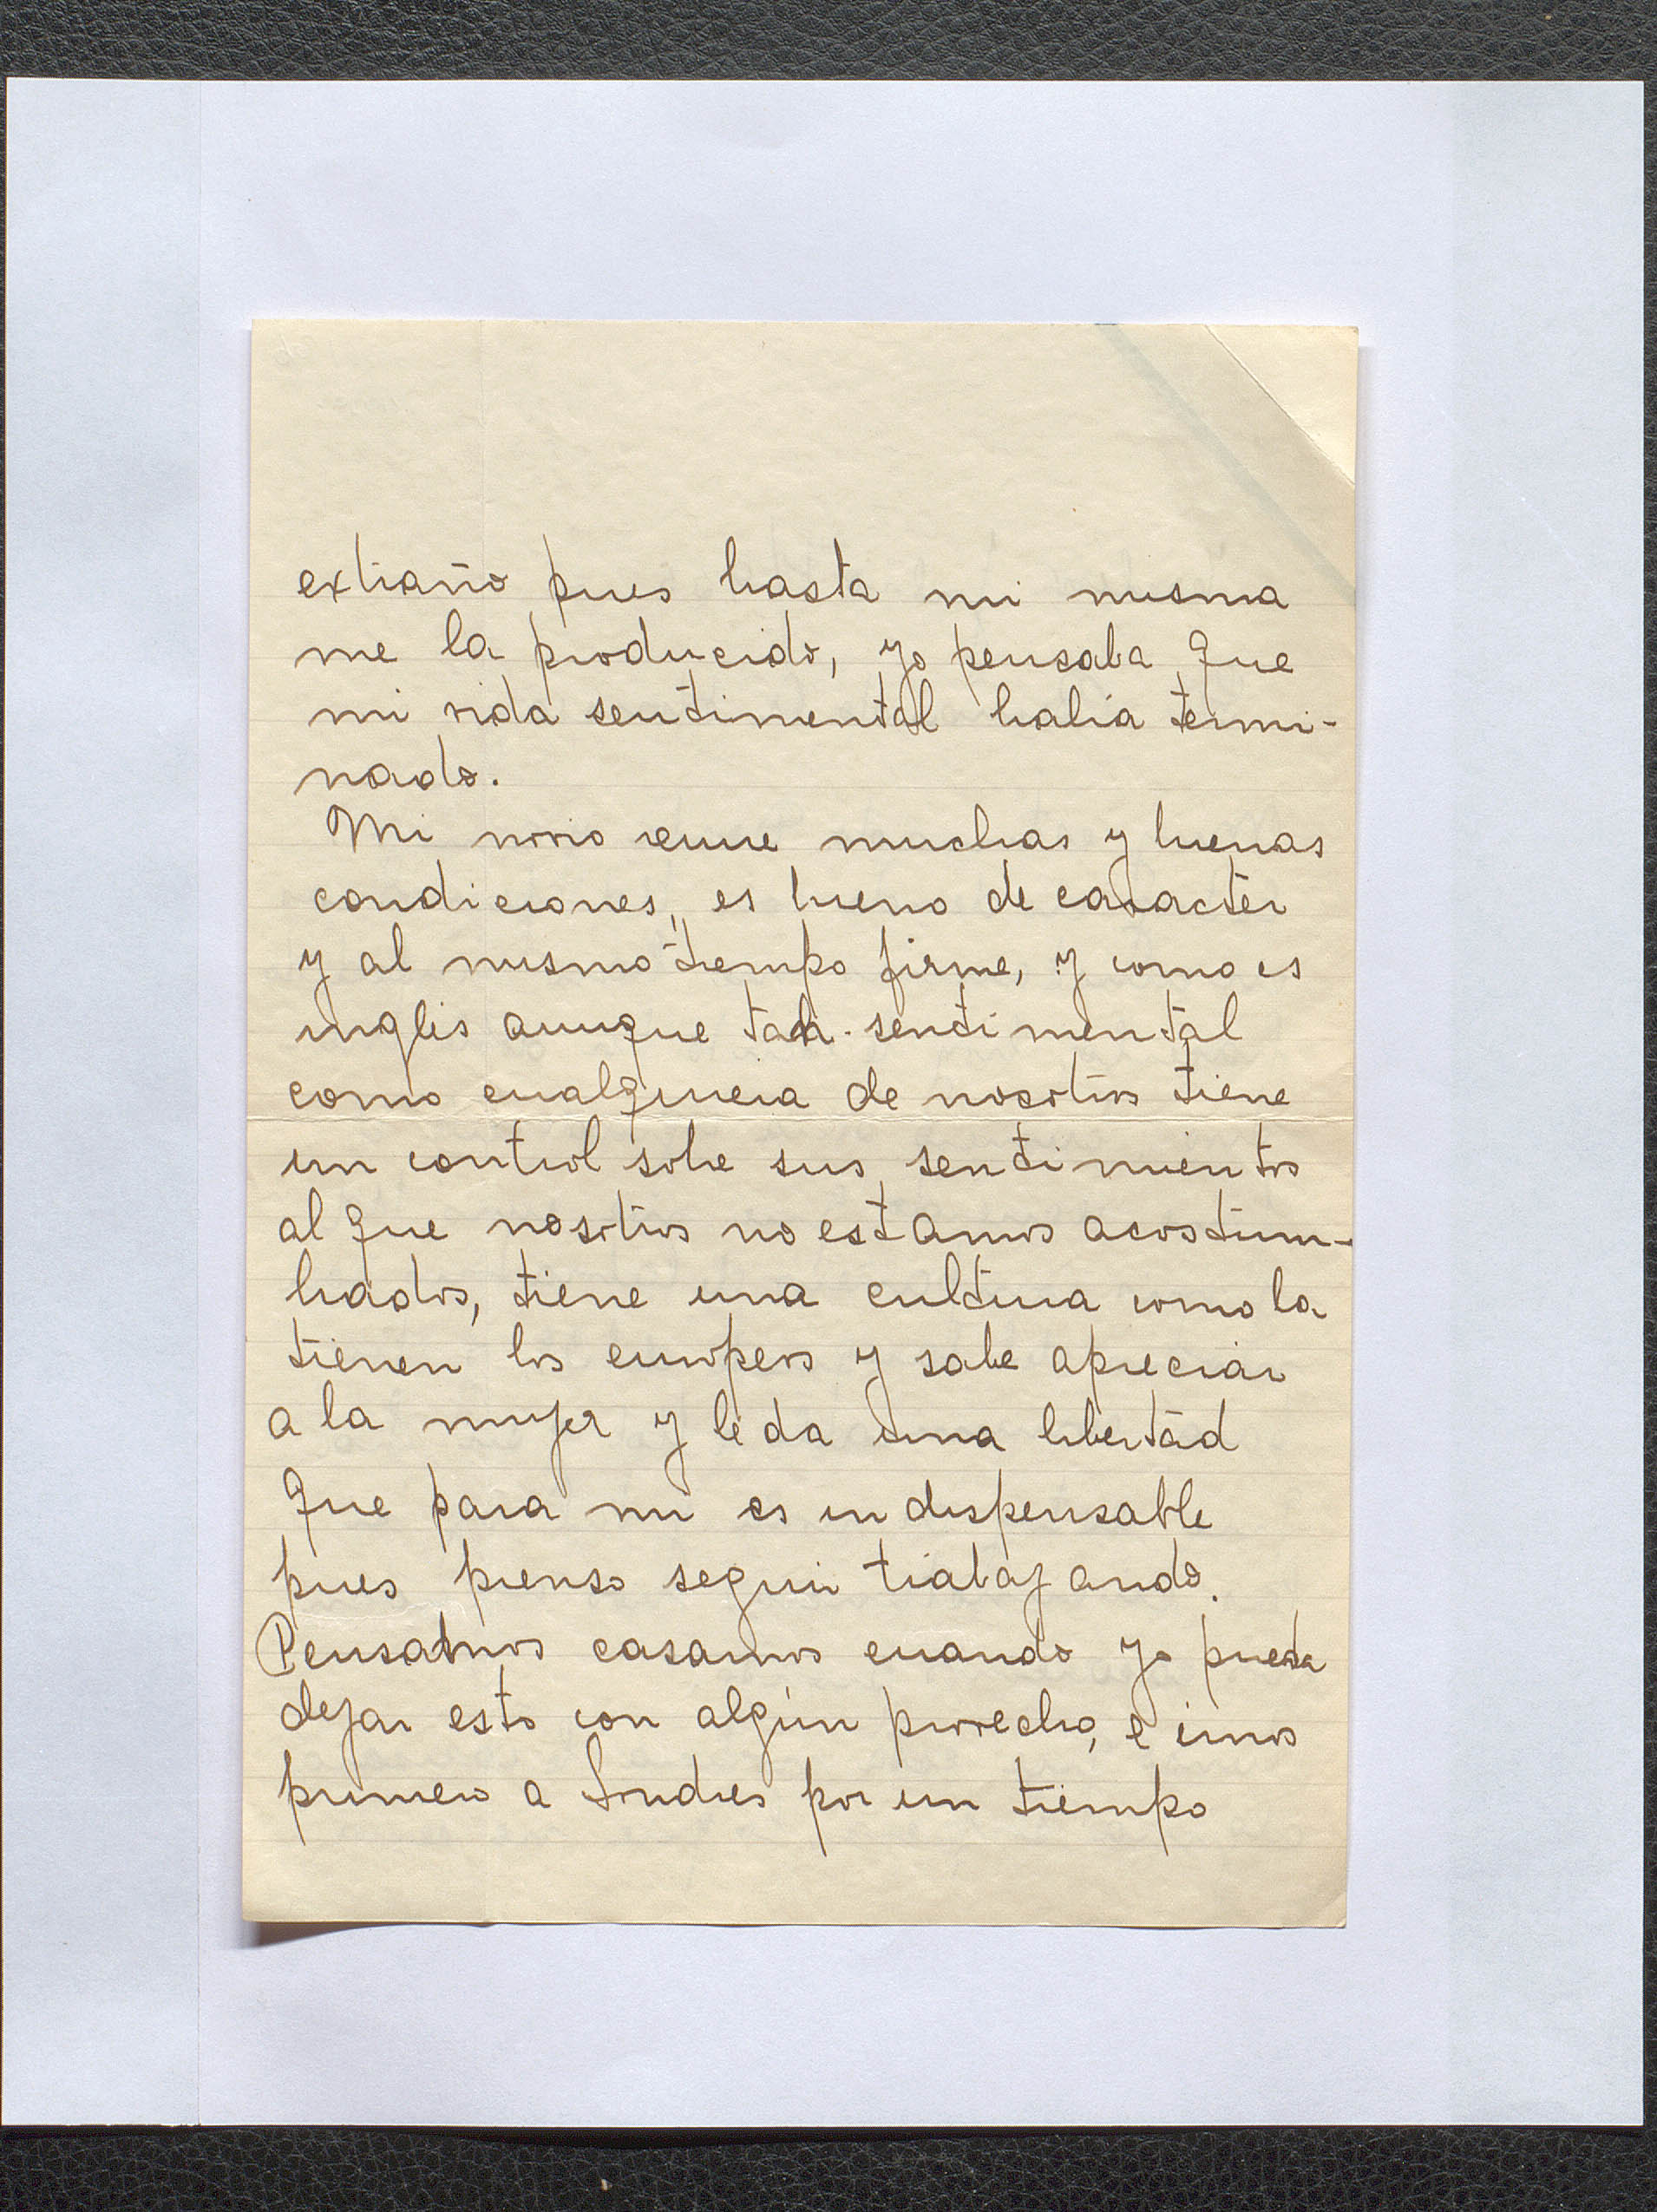 extraño pues hasta mi misma
me la producido, yo pensaba que
mi vida sentimental había termi-
nado.
Mi novio reune muchas y buenas
condiciones, es bueno de caracter
y al mismo tiempo firme, y como es
inglés aunque tan sentimental
como cualquiera de nosotros tiene
un control sobre sus sentimientos
al que nosotros no estamos acostum-
brados, tiene una cultura como la
tienen los europeos y sabe apreciar
a la mujer y le da una libertad
que para mi es indispensable
pues pienso seguir trabajando.
Pensamos casarnos cuando yo pueda
dejar esto con algún provecho, e irnos
primero a Londres por un tiempo